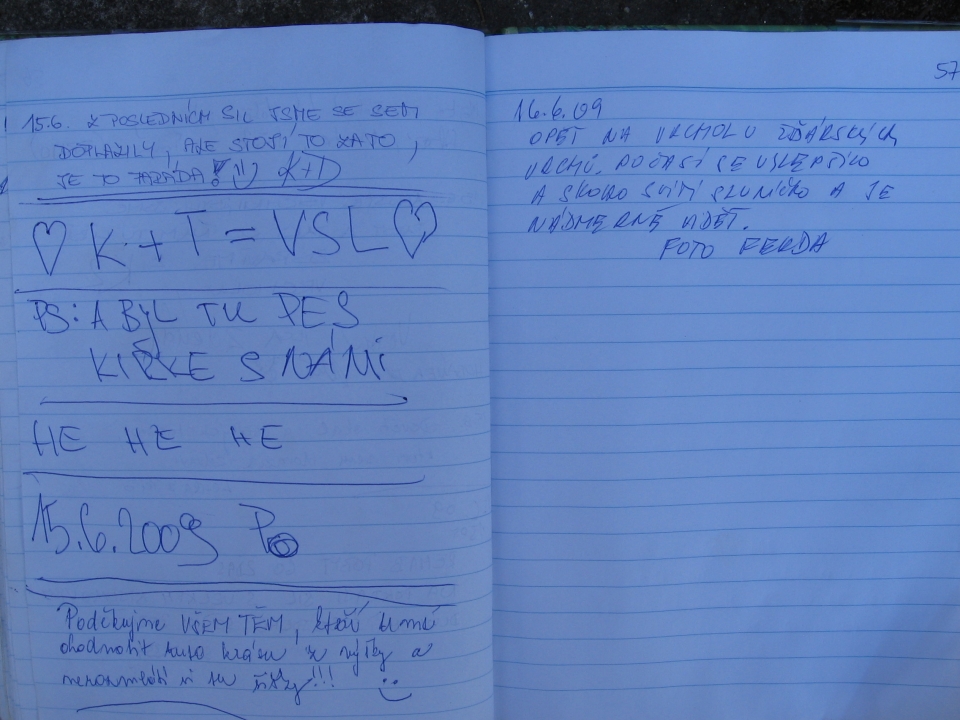 15.6. Z POSLEDNÍCH SIL JSME SE SEM
DOTLAŽILY, ALE STOJÍ TO ZA TO,
JE TO PARÁDA! K+D
♡ K + T = VSL ♡
PS: A BYL TU PES
KIRKE S NÁMI
HE HE HE
15.6.2009 Po
Poděkujme VŠEM TĚM, kteří umí
ohodnotit tuto krásu z výšky a
tu
57
16.6.09
OPĚT NA VRCHOLU ŽĎÁRSKÝCH
VRCHŮ. POČASÍ SE
A SKORO SVÍTÍ SLUNÍČKO A JE
NÁDHERNĚ VIDĚT.
FOTO FERDA